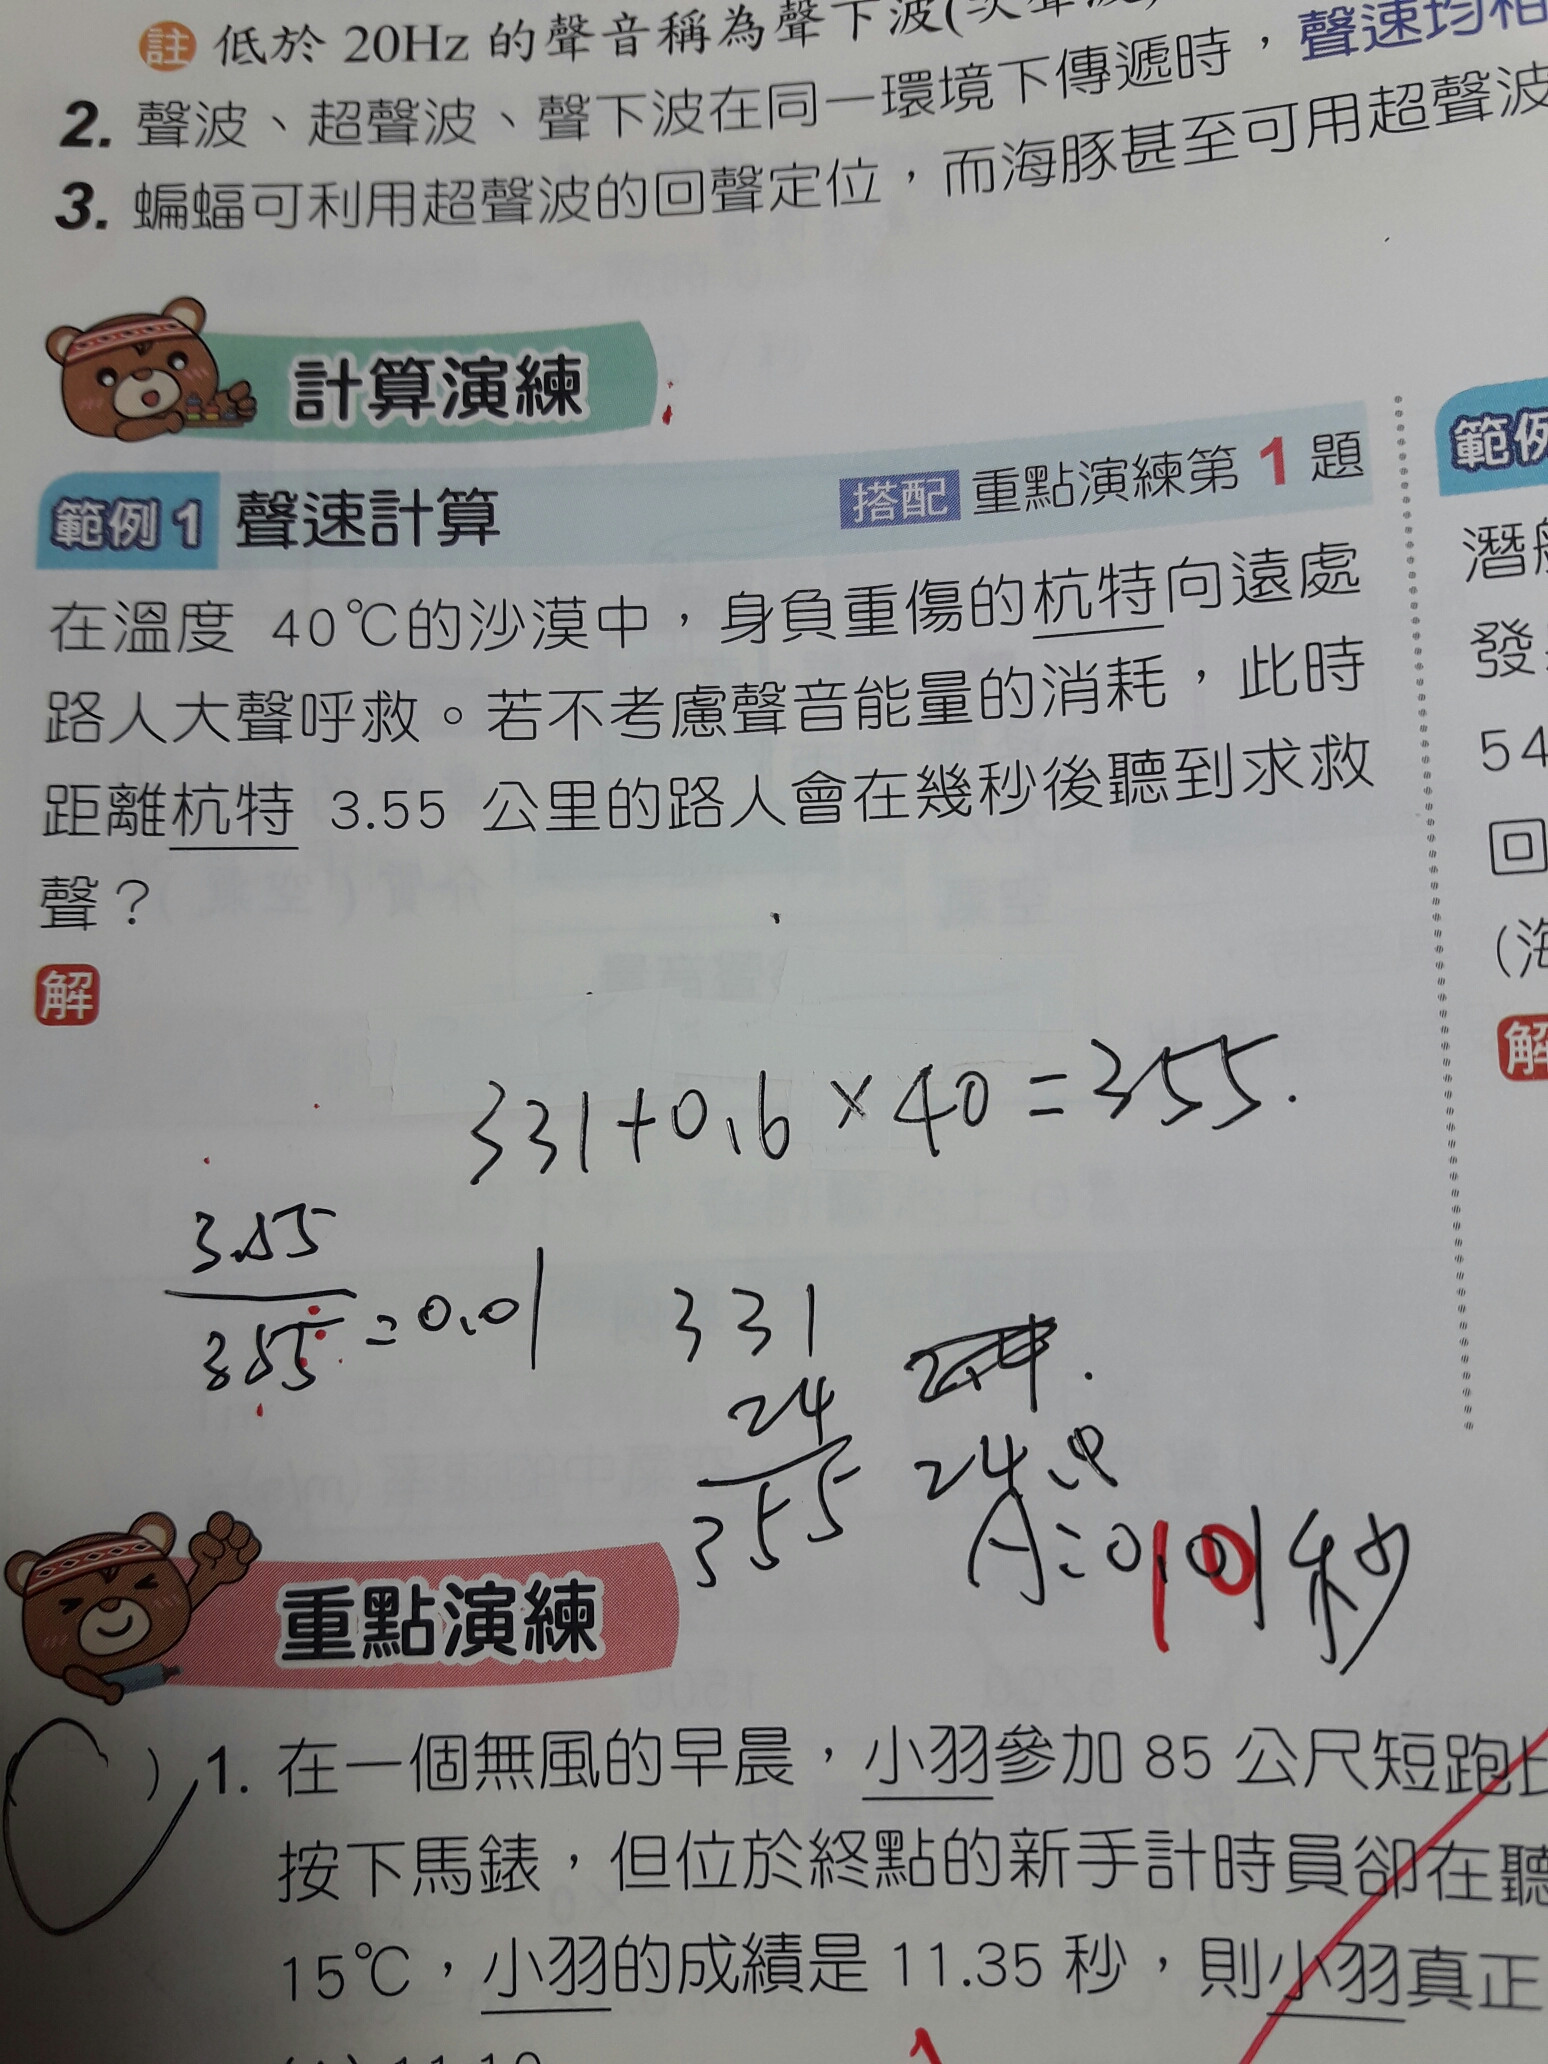 註 低於 20Hz 的聲音稱為聲下波(次聲波)
2. 聲波、超聲波、聲下波在同一環境下傳遞時，聲速均相
3. 蝙蝠可利用超聲波的回聲定位，而海豚甚至可用超聲波
計算演練
範例1 聲速計算 搭配 重點演練第 1 題
在溫度 40℃的沙漠中，身負重傷的杭特向遠處
路人大聲呼救。若不考慮聲音能量的消耗，此時
距離杭特 3.55 公里的路人會在幾秒後聽到求救
聲？
解
331+0.6×40=355.
3.55
355
=0.01
331
24
355
24.0
A:0.01秒
10
範例
潛
發
54
回
(海
解
重點演練
( ) 1. 在一個無風的早晨，小羽參加 85 公尺短跑比
按下馬錶，但位於終點的新手計時員卻在聽
15℃，小羽的成績是 11.35 秒，則小羽真正